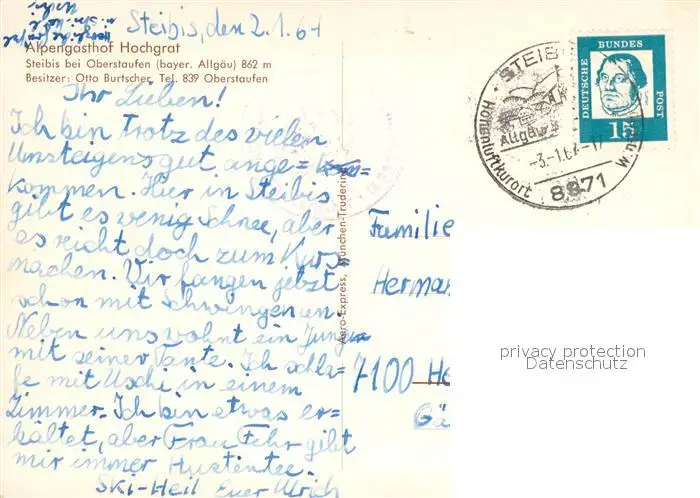 Steibis, den 2.1.64
Alpengasthof Hochgrat
Steibis bei Oberstaufen (bayer. Allgäu) 862 m
Besitzer: Otto Burtscher, Tel. 839 Oberstaufen
Ihr Lieben!
Ich bin trotz des vielen
Umsteigens gut ange=
kommen. Hier in Steibis
gibt es wenig Schnee, aber
es reicht doch zum Kurs
machen. Wir fangen jetzt
schon mit Schwingen an.
Neben uns wohnt ein Junge
mit seiner Tante. Ich schla=
fe mit Uschi in einem
Zimmer. Ich bin etwas er=
kältet, aber Frau Fehr gibt
mir immer Hustentee.
Ski-Heil Euer Ulrich
Herzliche Grüße
Uschi
Aero-Express, München-Trudering
STEIB
Allgäu
Höhenluftkurort
-3.-1.64.-17
8971
DEUTSCHE BUNDESPOST
15
Familie
Herman
7100 He
Gä
privacy protection
Datenschutz